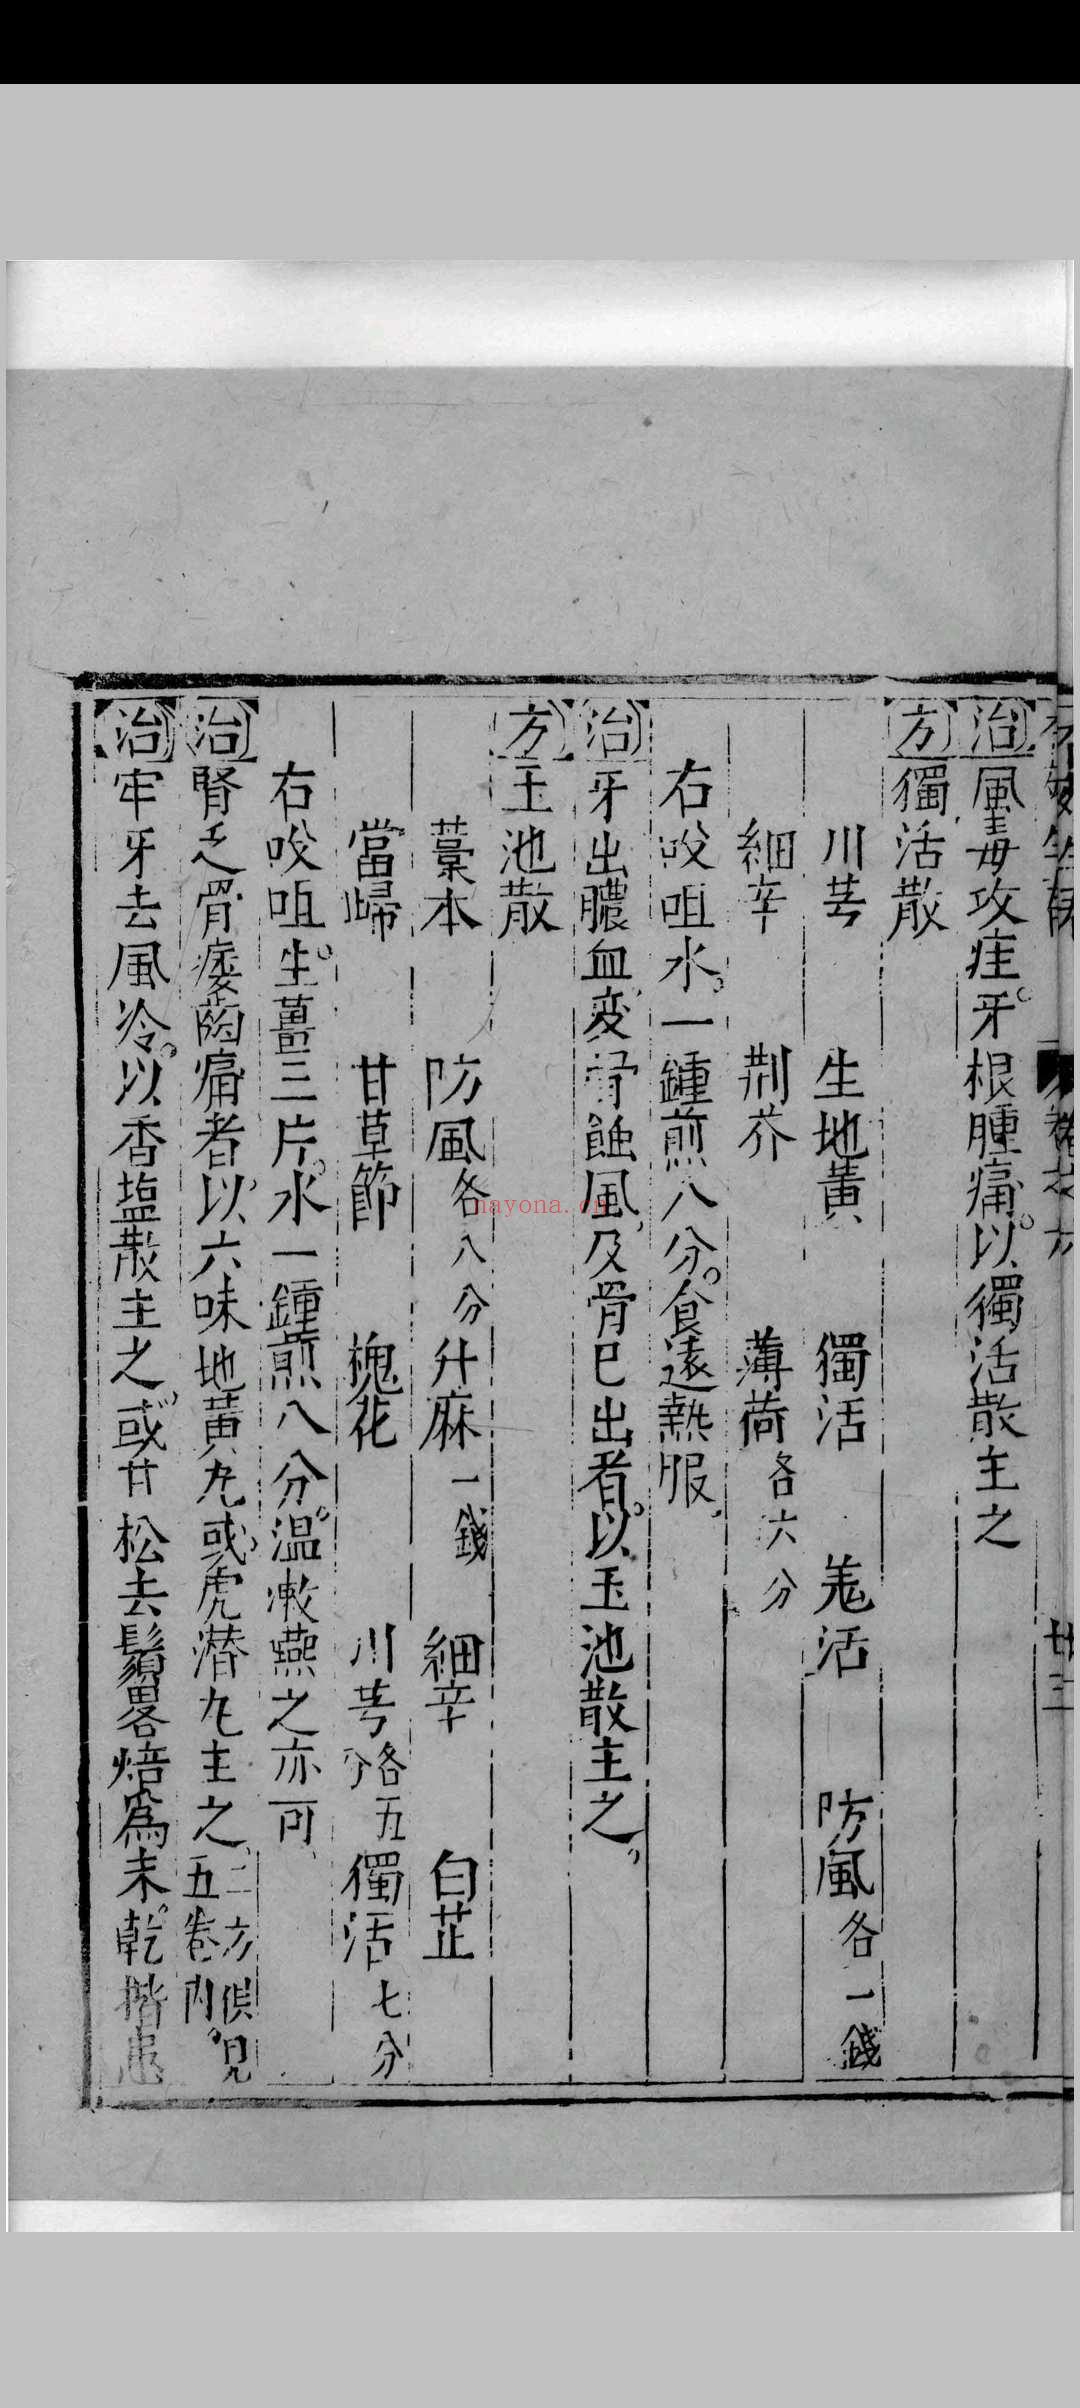 廿三
治風毒攻疰牙根腫痛以獨活散主之
方獨活散
川芎 生地黃 獨活 羗活 防風各一錢
細辛 荆芥 薄荷各六分
右㕮咀水一鍾煎八分食遠熱服
治牙出膿血変骨蝕風及骨已出者以玉池散主之
方玉池散
藁本 防風各八分 升麻一錢 細辛 白芷
當歸 甘草節 槐花 川芎各五分 獨活七分
右㕮咀生薑三片水一鍾煎八分温漱嚥之亦可
治腎乏骨痿齒痛者以六味地黃丸或虎潜丸主之二方俱見五卷內
治牢牙去風冷以香塩散主之或甘松去鬚畧焙為末乾揩
nayona.cn